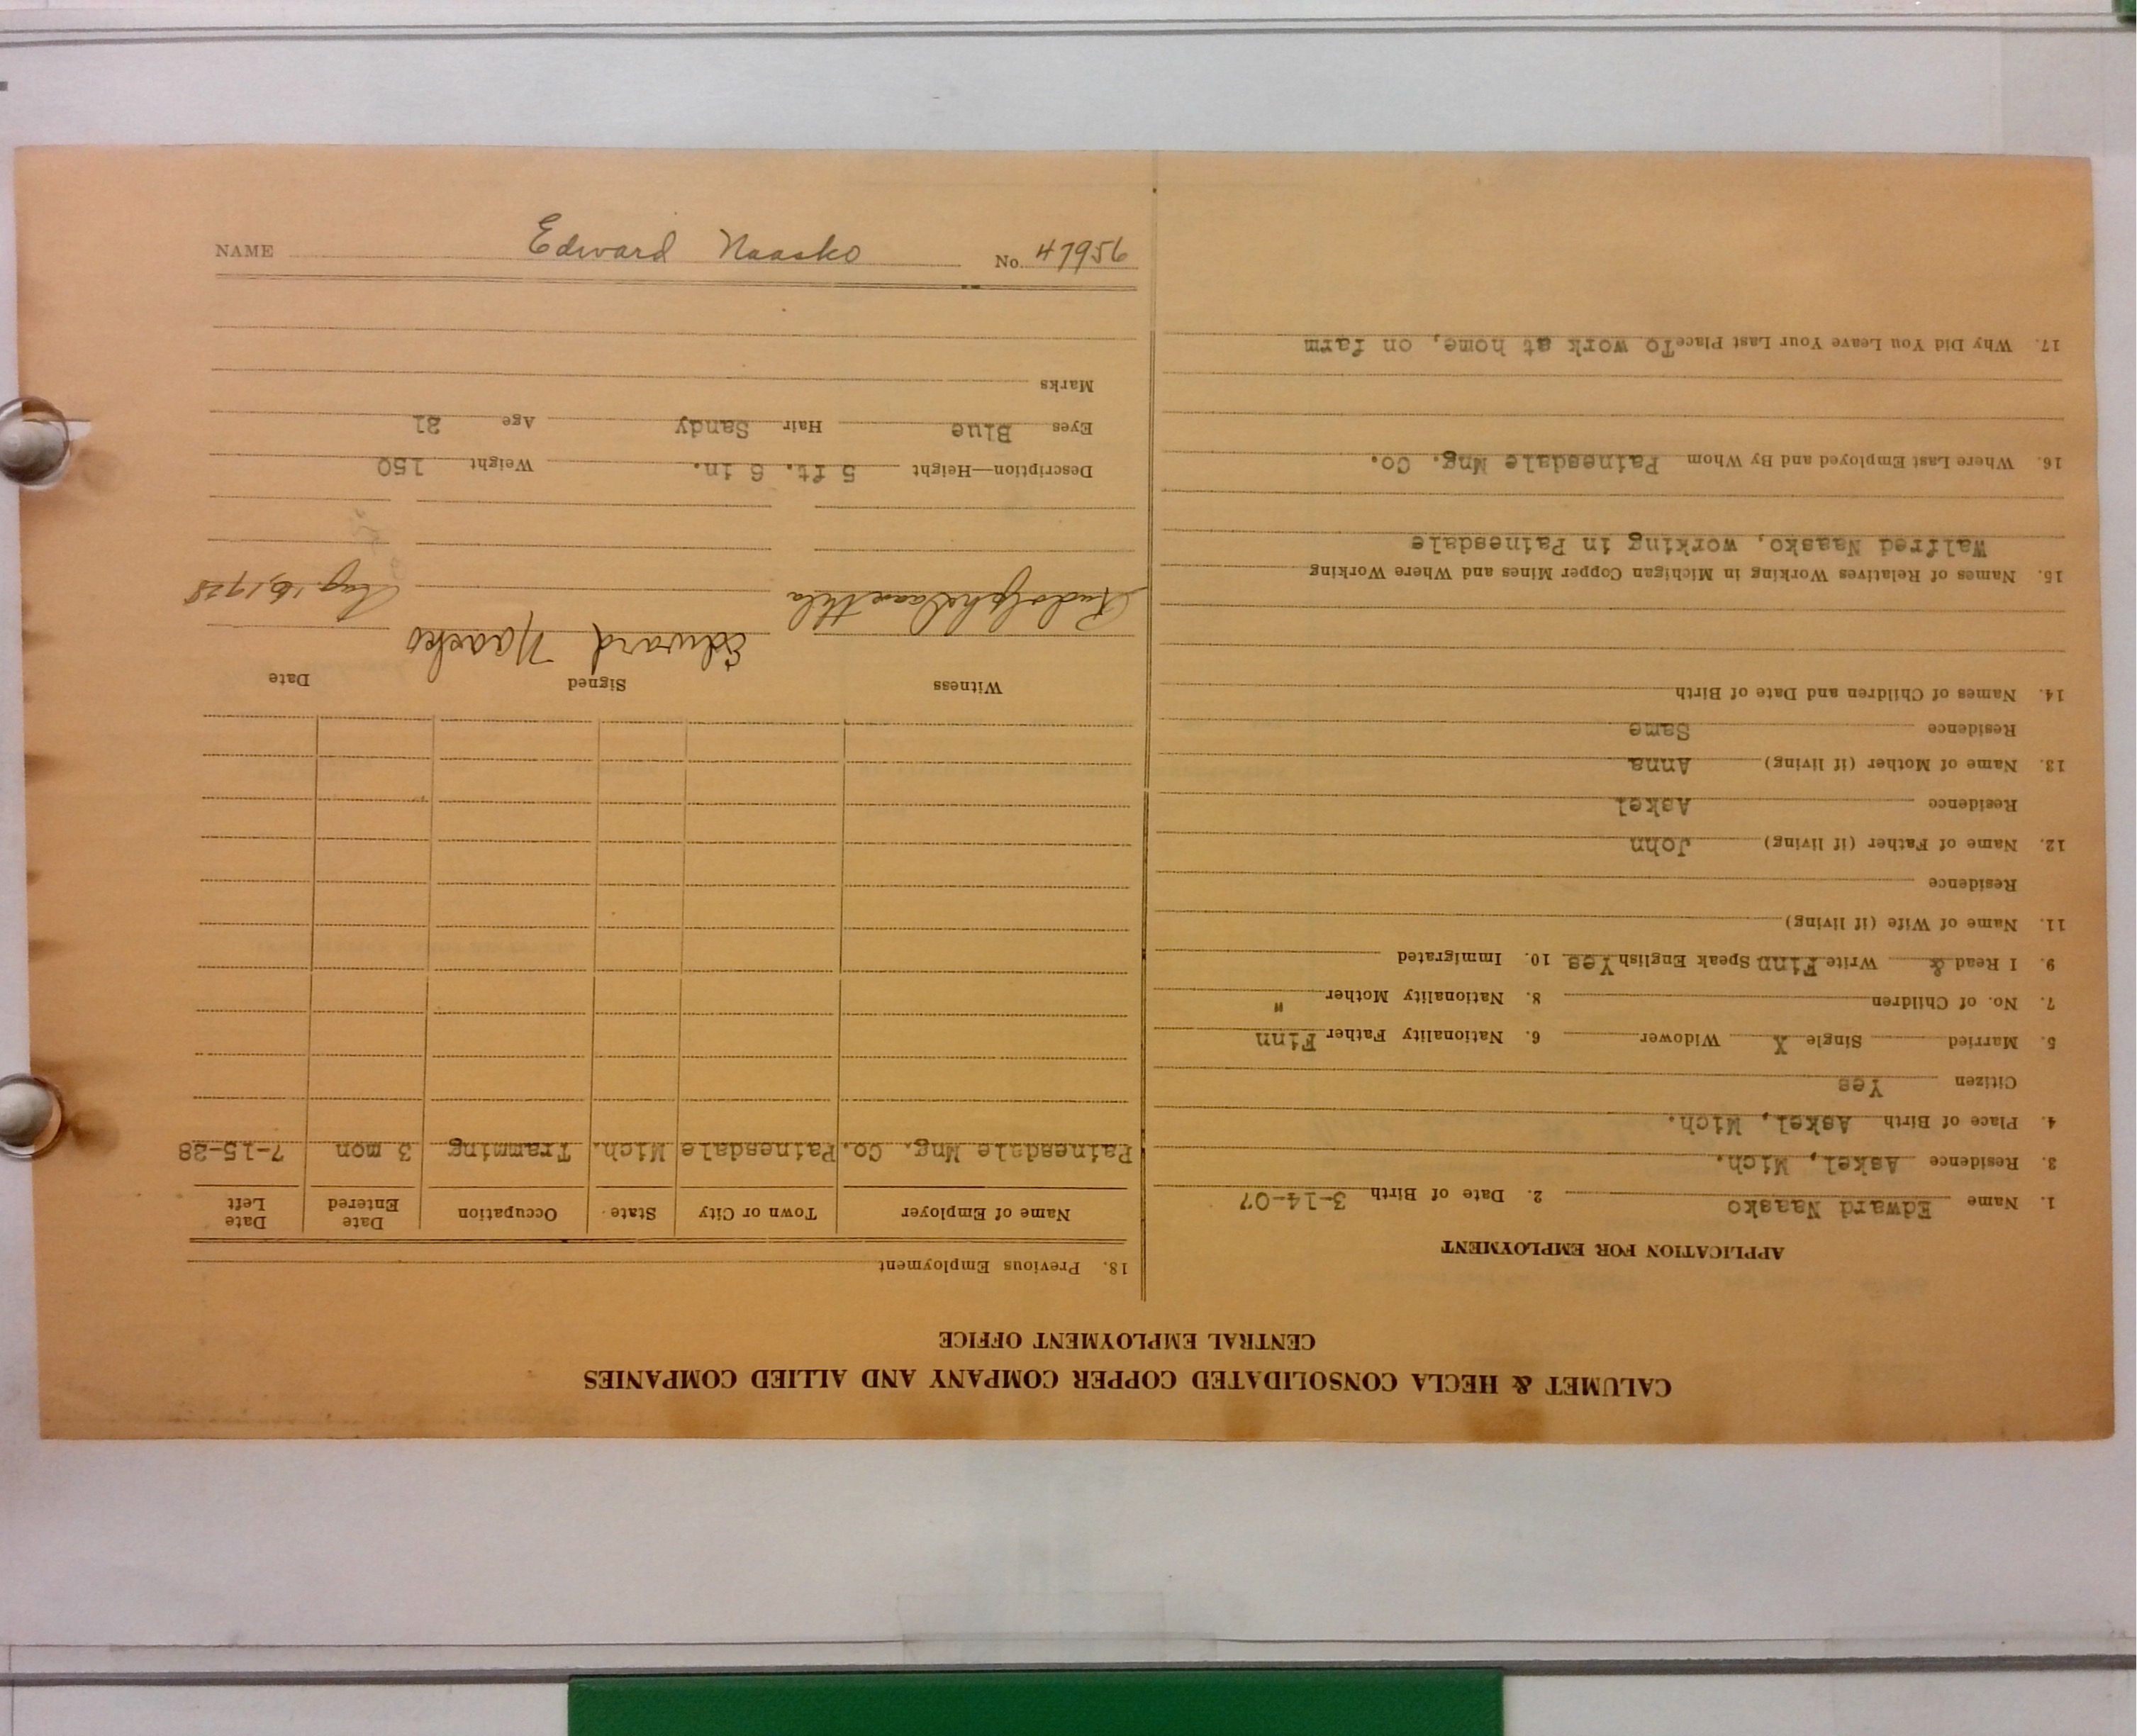 CALUMET & HECLA CONSOLIDATED COPPER COMPANY AND ALLIED COMPANIES
CENTRAL EMPLOYMENT OFFICE
APPLICATION FOR EMPLOYMENT
1. Name Edward Naasko 2. Date of Birth 3-14-07
3. Residence Askel, Mich.
4. Place of Birth Askel, Mich.
Citizen Yes
5. Married Single X Widower 6. Nationality Father Finn
7. No. of Children 8. Nationality Mother "
9. I Read & Write Finn Speak English Yes 10. Immigrated
11. Name of Wife (if living)
Residence
12. Name of Father (if living) John
Residence Askel
13. Name of Mother (if living) Anna
Residence Same
14. Names of Children and Date of Birth
15. Names of Relatives Working in Michigan Copper Mines and Where Working
Walfred Naasko, working in Painesdale
16. Where Last Employed and By Whom Painesdale Mng. Co.
17. Why Did You Leave Your Last Place To work at home, on farm
18. Previous Employment
Name of Employer Town or City State Occupation Date Entered Date Left
Painesdale Mng. Co. Painesdale Mich. Tramming 3 mon 7-15-28
Witness Signed Date
Rudolph Edward Naasko Aug. 16, 1928
Description—Height 5 ft. 6 in. Weight 150
Eyes Blue Hair Sandy Age 21
Marks
NAME Edward Naasko No. 47956